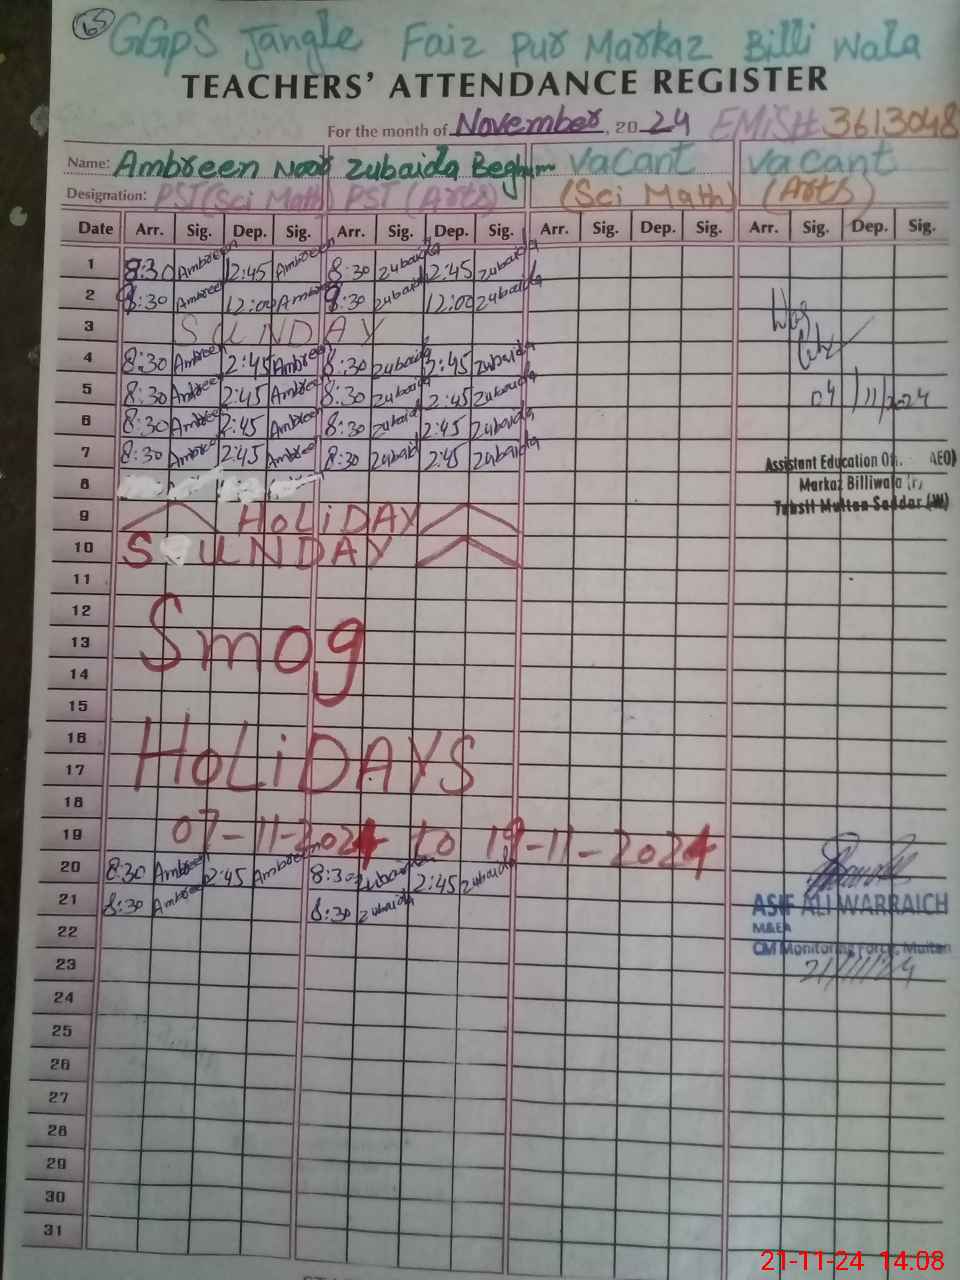 65
GGPS Jangle Faiz Pur Markaz Billi Wala
TEACHERS' ATTENDANCE REGISTER
For the month of November, 2024 EMIS# 3613048
Name: Ambreen Noor Zubaida Beghum Vacant Vacant
Designation: PST (Sci Math) PST (Arts) (Sci Math) (Arts)
Date Arr. Sig. Dep. Sig. Arr. Sig. Dep. Sig. Arr. Sig. Dep. Sig. Arr. Sig. Dep. Sig.
1 8:30 Ambreen 2:45 Ambreen 8:30 Zubaida 2:45 Zubaida
2 8:30 Ambreen 12:00 Ambreen 8:30 Zubaida 12:00 Zubaida
3 SUNDAY
4 8:30 Ambreen 2:45 Ambreen 8:30 Zubaida 2:45 Zubaida
5 8:30 Ambreen 2:45 Ambreen 8:30 Zubaida 2:45 Zubaida 04/11/2024
6 8:30 Ambreen 2:45 Ambreen 8:30 Zubaida 2:45 Zubaida
7 8:30 Ambreen 2:45 Ambreen 8:30 Zubaida 2:45 Zubaida
Assistant Education Off. AEO)
8 Markaz Billiwala
9 HOLiDAY Tehsil Multan Saddar (W)
10 SUNDAY
11
12
13 Smog
14
15
16
17 HOLiDAYS
18
19 07-11-2024 to 19-11-2024
20 8:30 Ambreen 2:45 Ambreen 8:30 Zubaida 2:45 Zubaida
21 8:30 Ambreen 8:30 Zubaida ASIF ALI WARRAICH
22 M&EA
CM Monitoring Force, Multan
23 21/11/24
24
25
26
27
28
29
30
31
21-11-24 14.08